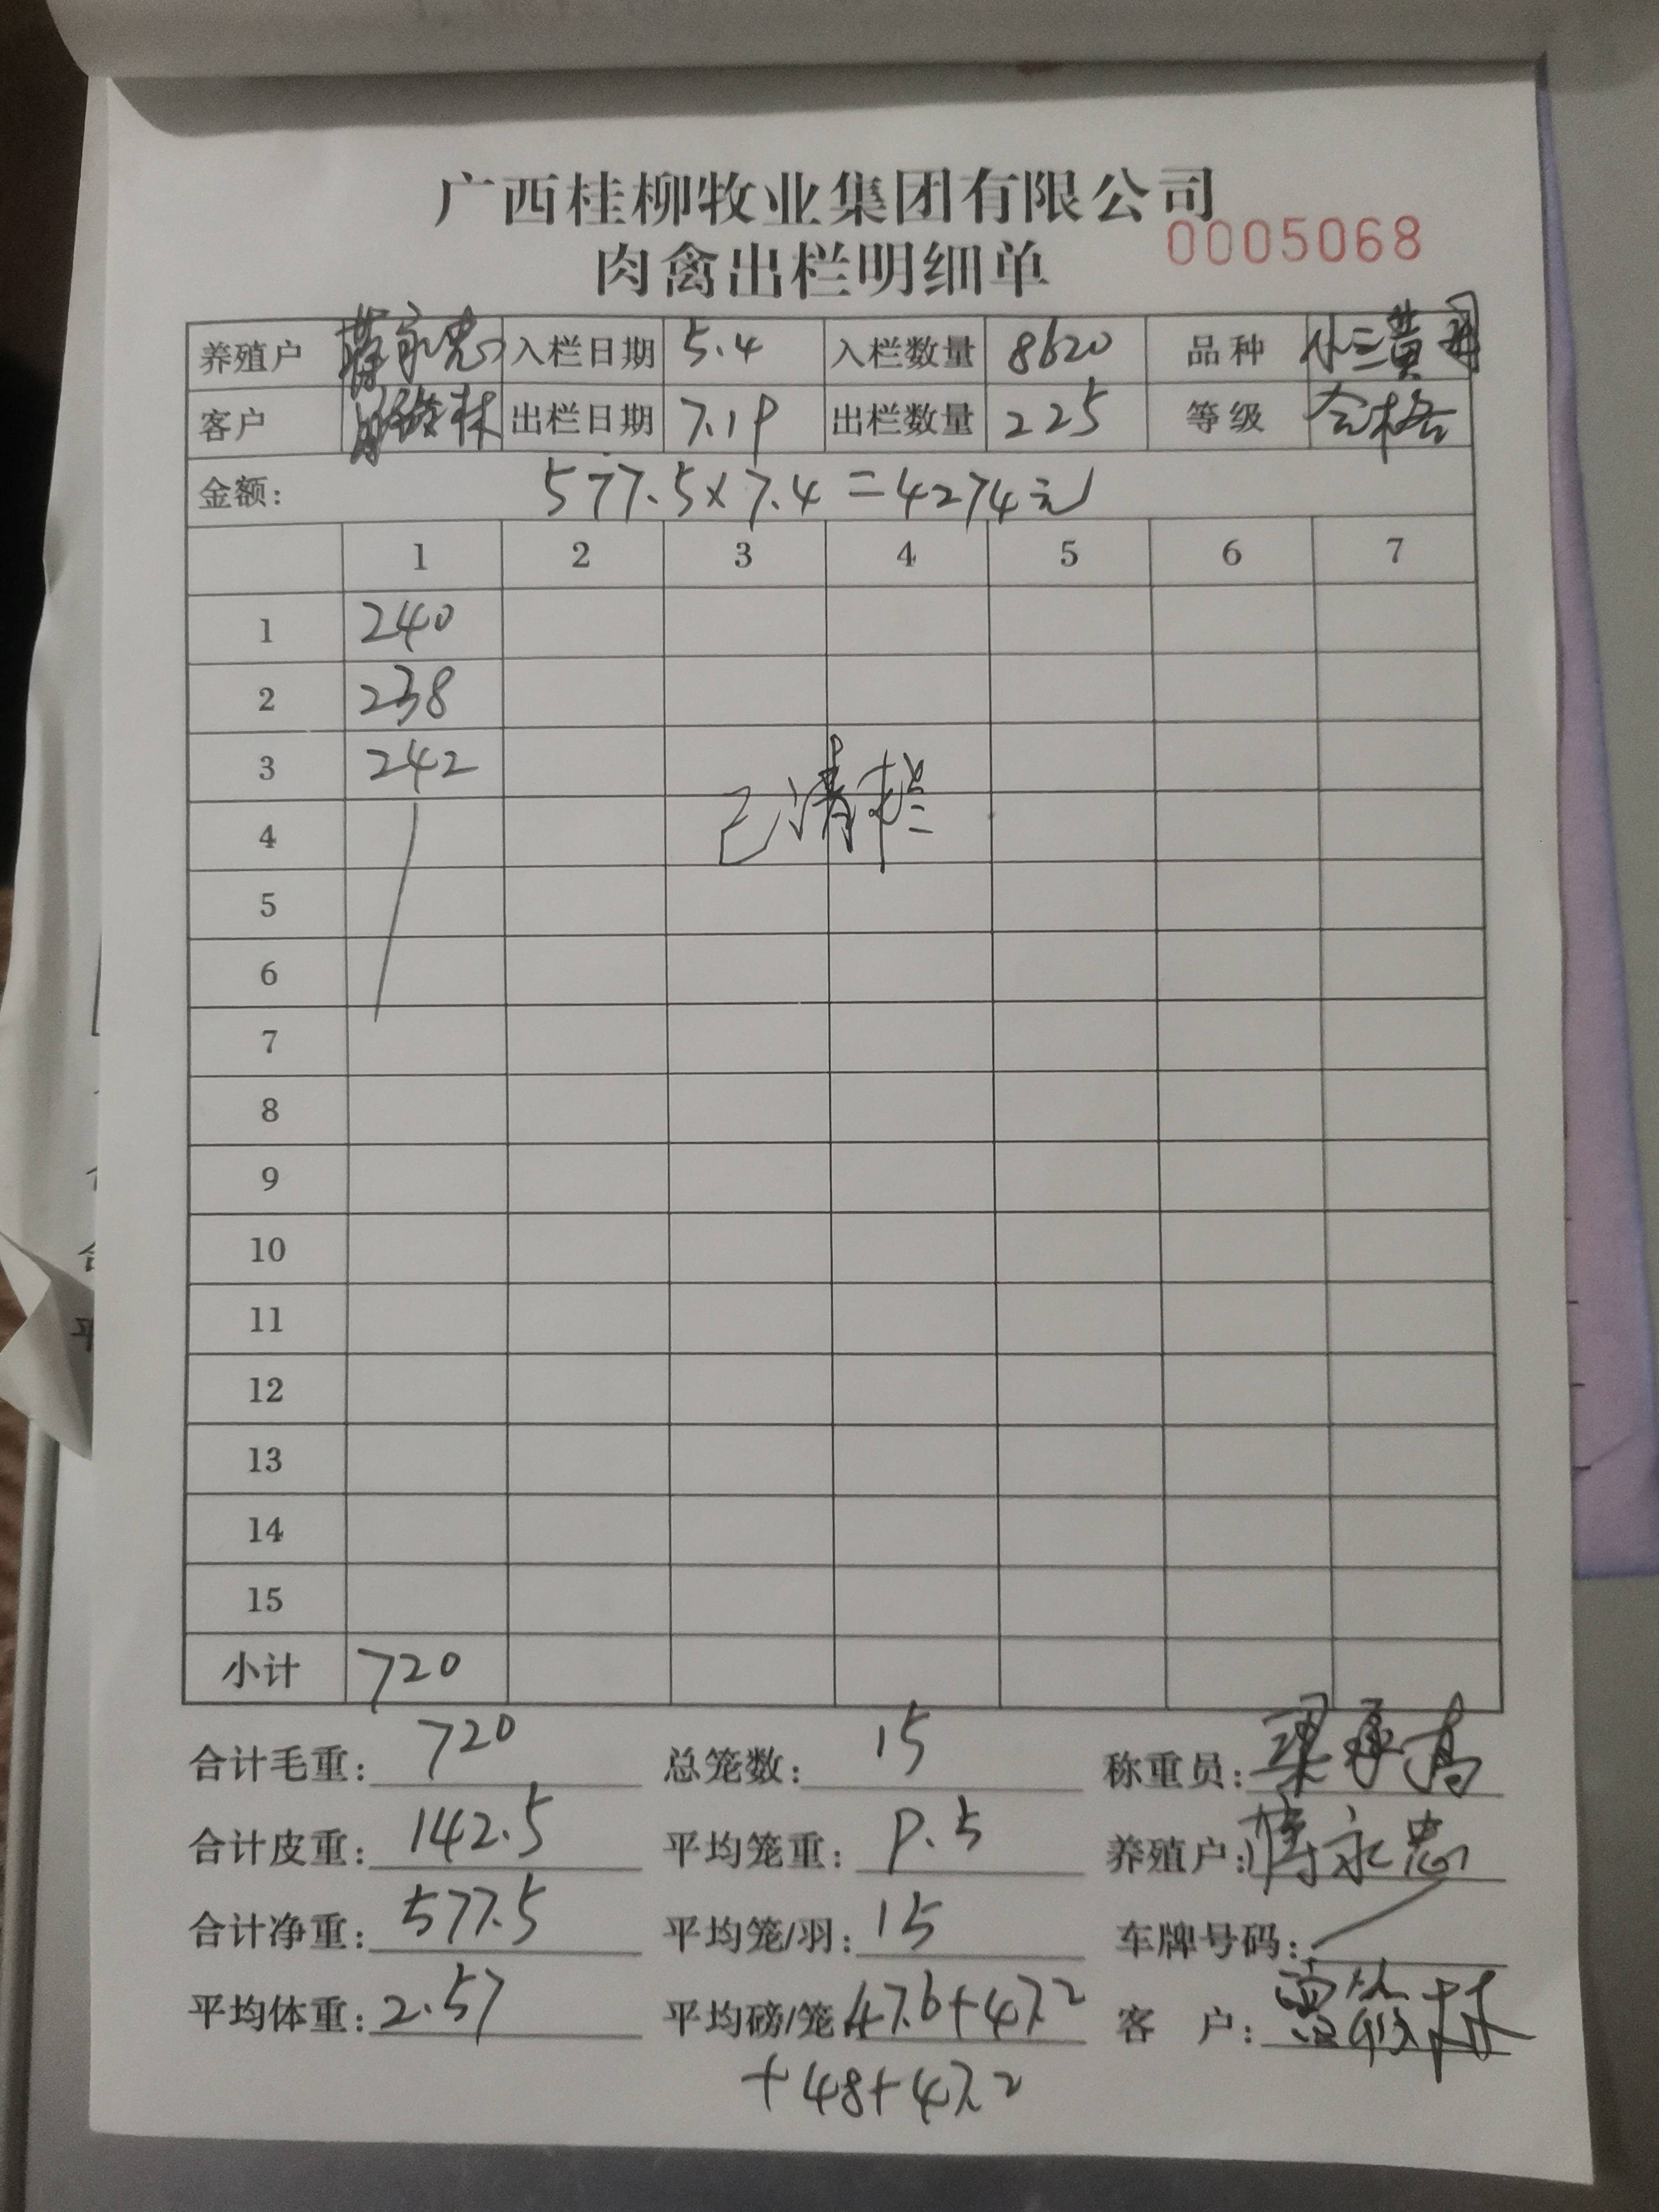 广西桂柳牧业集团有限公司
肉禽出栏明细单 0005068
养殖户 永忠 入栏日期 5.4 入栏数量 8620 品种 小三黄
客户 林 出栏日期 7.19 出栏数量 225 等级 合格
金额: 577.5×7.4=4274元
1 2 3 4 5 6 7
1 240
2 238
3 242
已清栏
4
5
6
7
8
9
10
11
12
13
14
15
小计 720
合计毛重: 720 总笼数: 15 称重员: 梁
合计皮重: 142.5 平均笼重: 9.5 养殖户: 永忠
合计净重: 577.5 平均笼/羽: 15 车牌号码:
平均体重: 2.57 平均磅/笼: 47.6+47.2 客户: 林
+48+47.2